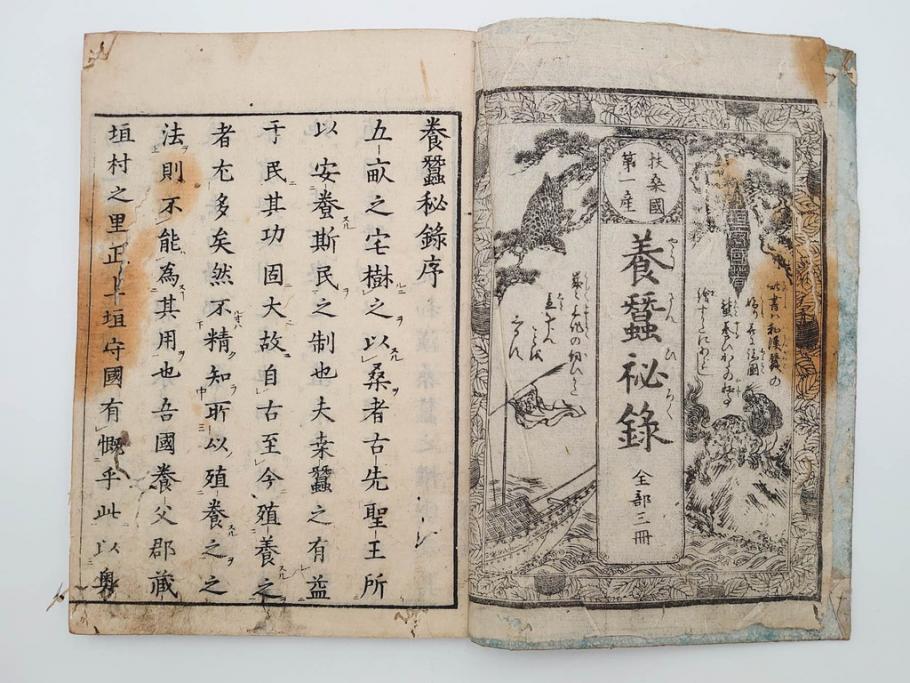 此書ハ和漢蠶の
扶桑國
第一産
養蠶秘錄
全部三冊
養蠶秘錄序
五畝之宅樹之以桑者古先聖王所
以安養斯民之制也夫桒蠶之有益
于民其功固大故自古至今殖養之
者尤多矣然不精知所以殖養之之
法則不能為其用也吾國養父郡蔵
垣村之里正上垣守國有慨乎此以奥